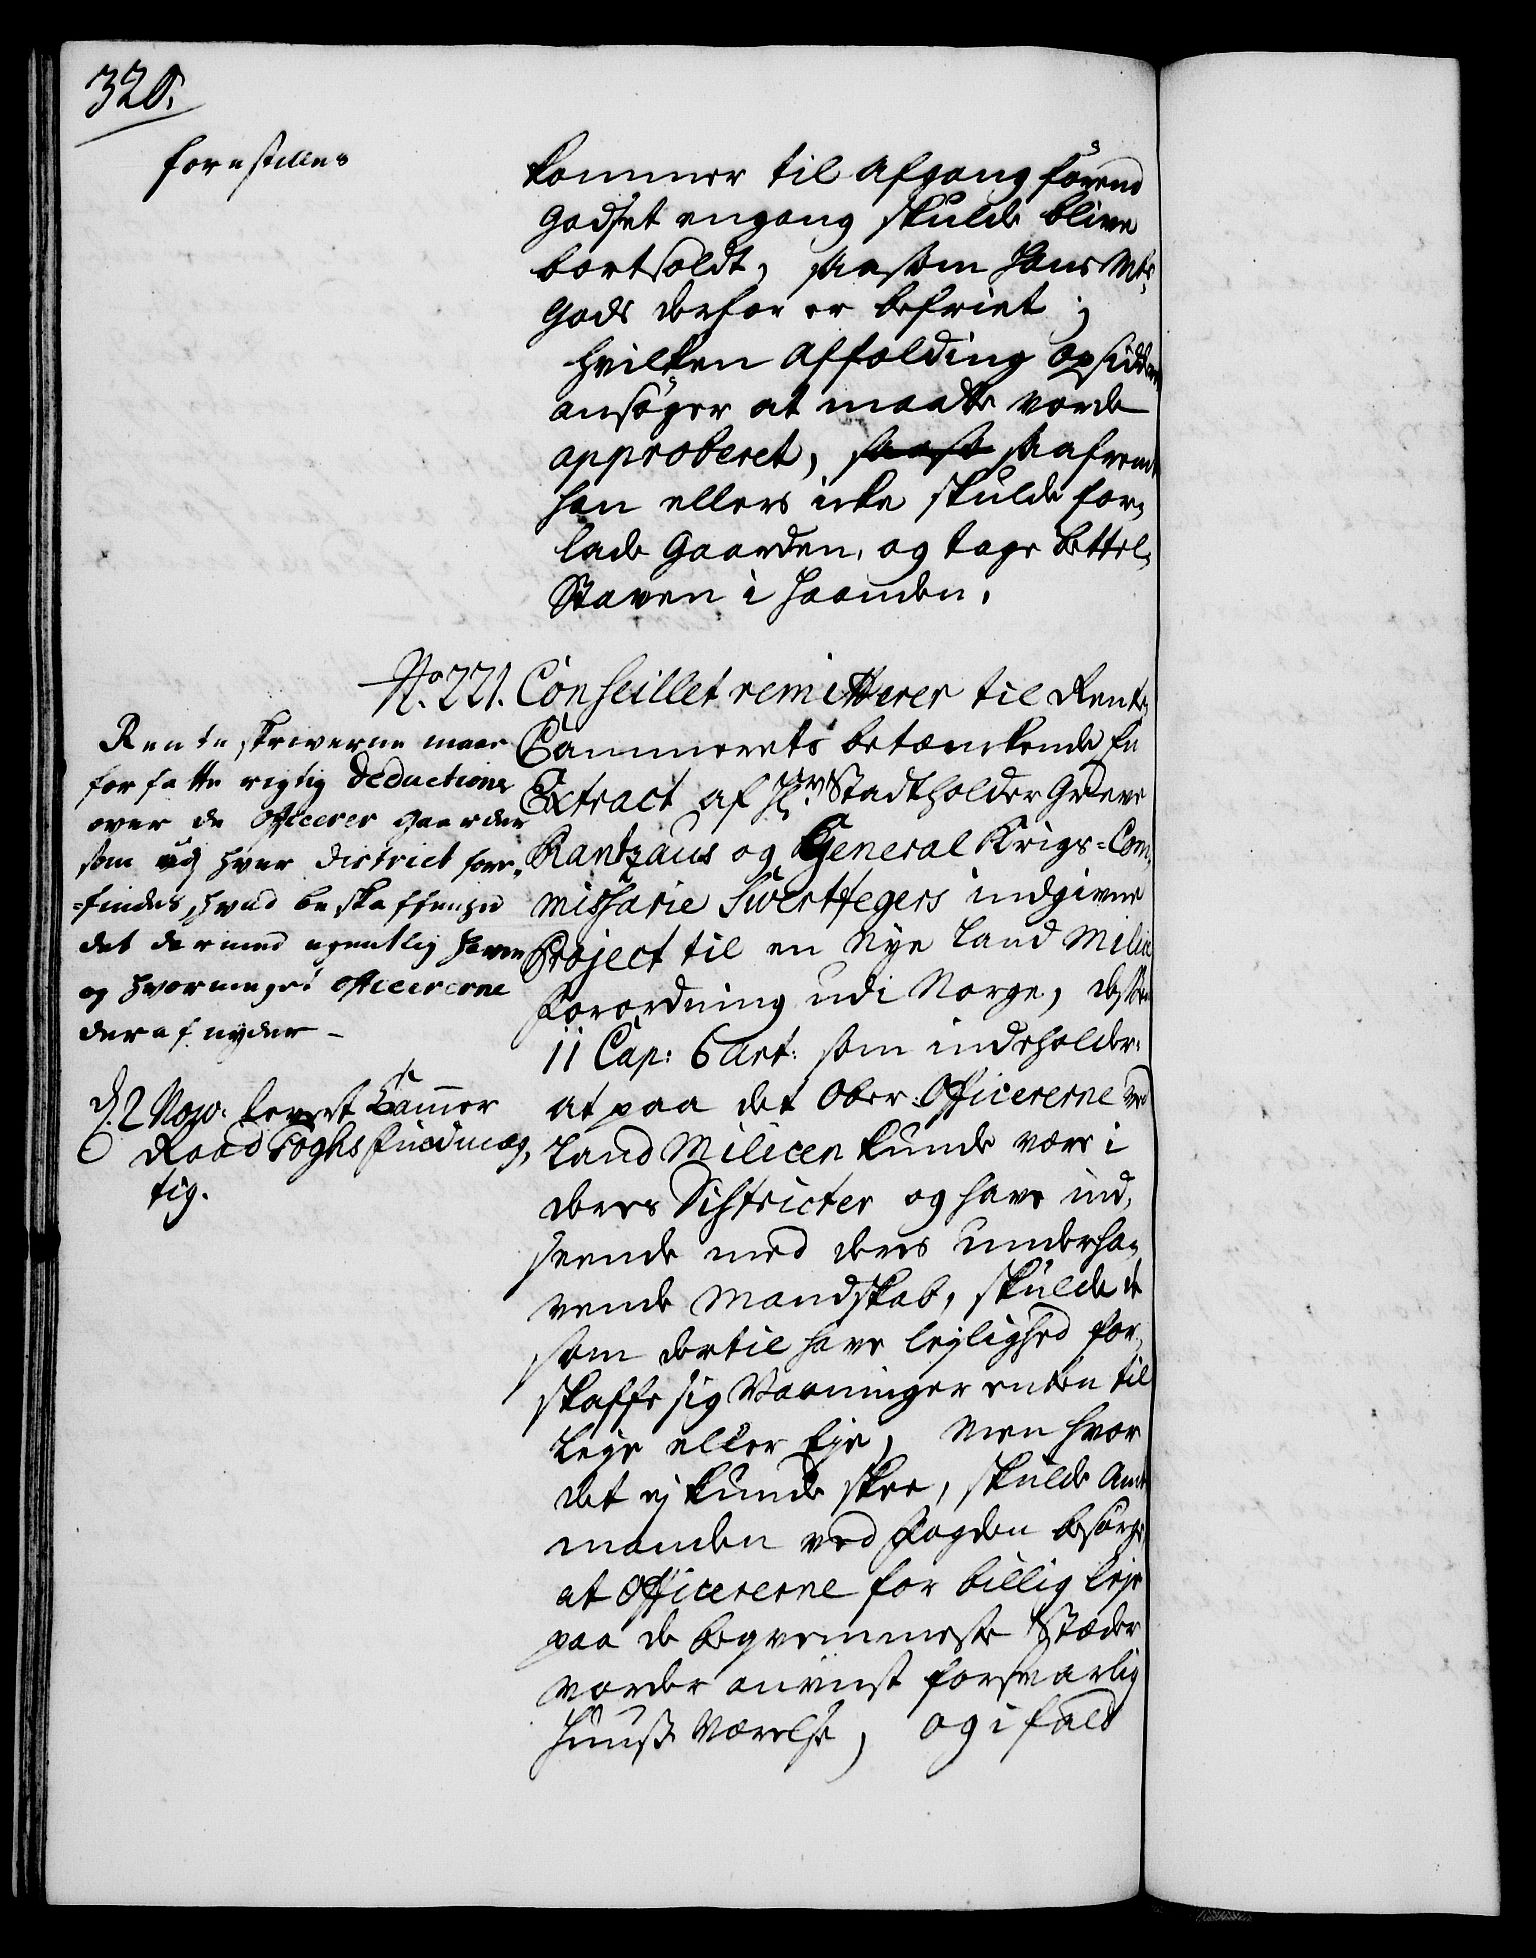 320.
forestilles
kommer til Afgang førend
Godset engang skulde blive
bortsoldt, saasom Hans Mts
Gods derfor er befriet;
hvilken Affolding Opsidderen
ansøger at maatte vorde
approberet, saafremt
han ellers icke skulde for„
lade Gaarden, og tage Bettel„
Staven i Haanden.
No. 221. Conseillet remitterer til Rente
Cammerets betænckende En
Extract af Hr. Stadtholder Greve
Rantzaus og General Krigs=Com„
missarie Svertfegers indgivne
Project til en Nye Land Milice
Forordning udi Norge, desten
11 Cap: 6 Art: som indeholder:
at paa det Ober: Officererne ved
Land Milicen kunde være i
deres Districter og have ind„
seende med deres underha„
vende Mandskab, skulde de
som dertil have lejlighed for„
skaffe sig Vaaninger enten til
Leye eller Eje, Men hvor
det ej kunde skee, skulde Amt
manden ved Fogden besørge
at Officererne for billig leje
paa de beqvemmeste Stæder
vorder anvist forsvarlig
Huuß Værelse, og i fald
Renteskriverne maae
forfatte rigtig Deductioner
over de Officeer gaarder
som udj hver District for„
=findes, hvad beskaffenhed
det dermed egentlig haver
og hvormeget officererne
deraf nyder –
d. 2 Nov. leveret Cammer
Raad Foghs Fuldmæg„
tig.